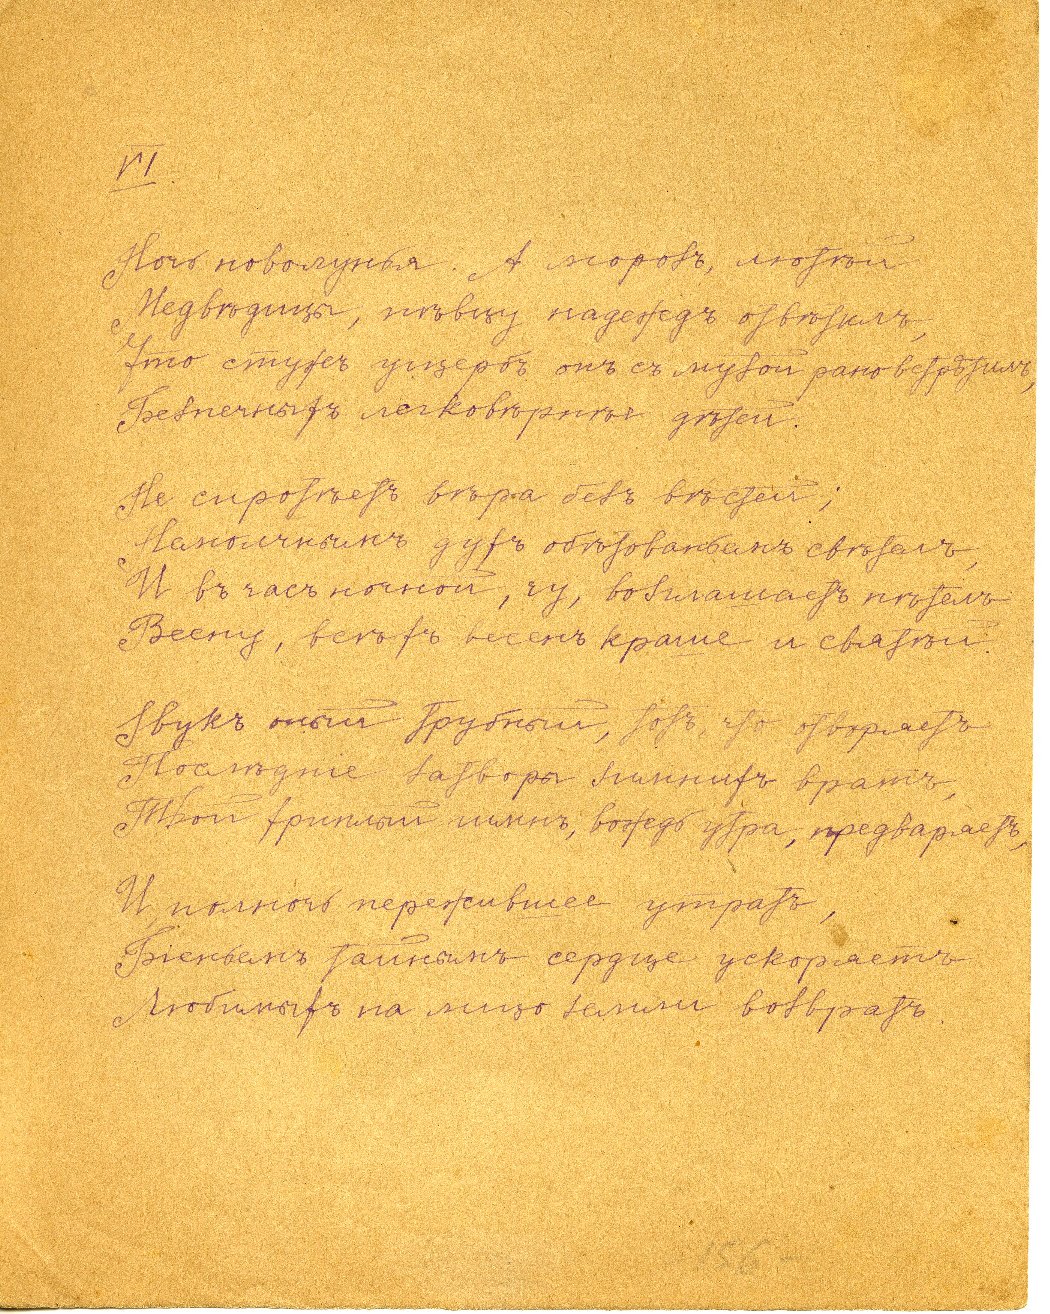 VI.
Ночь новолунья. А морозъ, лютѣй
Медвѣдицы, пѣвцу надеждъ отвѣтилъ,
Что стужъ ущербъ онъ съ музой рано встрѣтилъ,
Безпечныхъ легковѣрнѣе дѣтей.
Не сиротѣетъ вѣра безъ вѣстей;
Немолчнымъ духъ обѣтованьемъ свѣтелъ,
И въ часъ ночной, чу, возглашаетъ пѣтелъ
Весну, всѣхъ весенъ краше и святѣй.
Звукъ оный трубный, тотъ, что отворяетъ
Послѣдніе затворы зимнихъ вратъ,
Твой хриплый гимнъ, вождь утра, предваряетъ,
И, полночь пережившее утратъ,
Біеньемъ тайнымъ сердце ускоряетъ
Любимыхъ на лицо земли возвратъ.
156